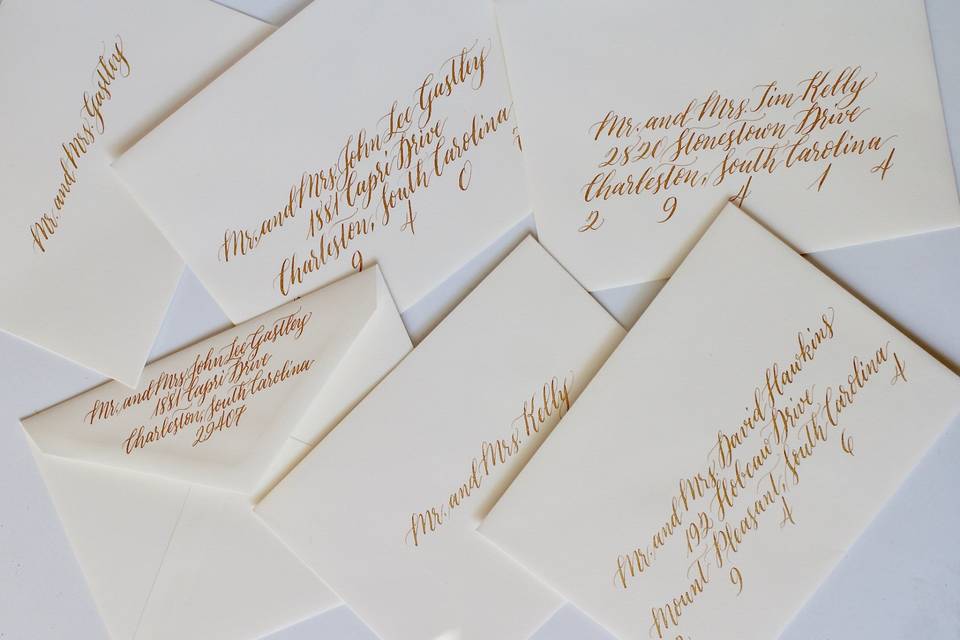 Mr. and Mrs. Gastley
Mr. and Mrs. John Lee Gastley
1881 Capri Drive
Charleston, South Carolina
9 4 0
Mr. and Mrs. Tim Kelly
2820 Stonestown Drive
Charleston, South Carolina
2 9 4 1 4
Mr. and Mrs. John Lee Gastley
1881 Capri Drive
Charleston, South Carolina
29407
Mr. and Mrs. Kelly
Mr. and Mrs. David Hawkins
192 Hobcaw Drive
Mount Pleasant, South Carolina
9 4 6 4